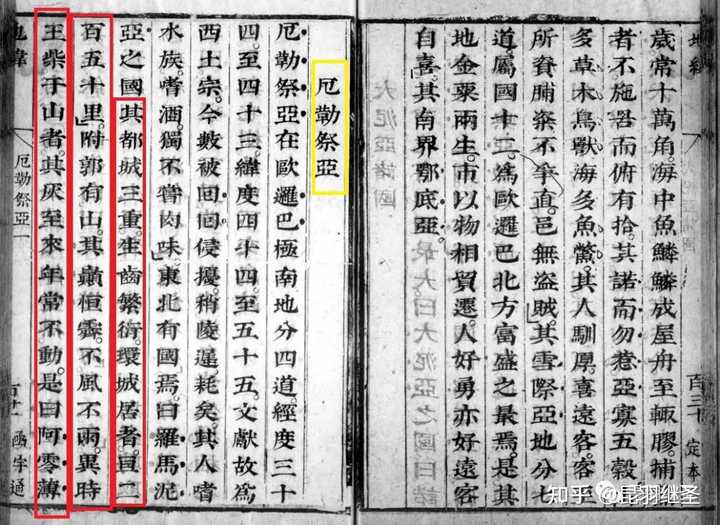 歲常十萬角。海中魚鱗鱗成屋舟至輙膠。捕
者不施罟而俯有拾。其諾而勿惹亞寡五穀
多草木鳥獸海多魚鱉。其人馴厚。喜遠客。客
所資脯粢不爭直。邑無盜賊。其雪際亞地分七
道。屬國十二。爲歐邏巴北方富盛之最焉。是其
地金粟兩生。市以物相貿遷。人好勇亦好遠客
自喜。其南界鄂底亞。
百三十 定本
厄勒祭亞
厄勒祭亞在歐邏巴極南地分四道。經度三十
四至四十三緯度四十四至五十五。文獻故爲
西土宗。今數被回回侵擾。稍陵遲耗矣。其人嗜
水族。嗜酒。獨不嘗肉味。東北有國焉。曰羅馬泥
亞之國。其都城三重。生齒繁衍。環城居者。亘二
百五十里。附郭有山。其巔恒霽。不風不雨。異時
王祡于山者。其灰至來年常不動。是曰阿零薄
地緯 厄勒祭亞一 函宇通
知乎 @昆羽继圣